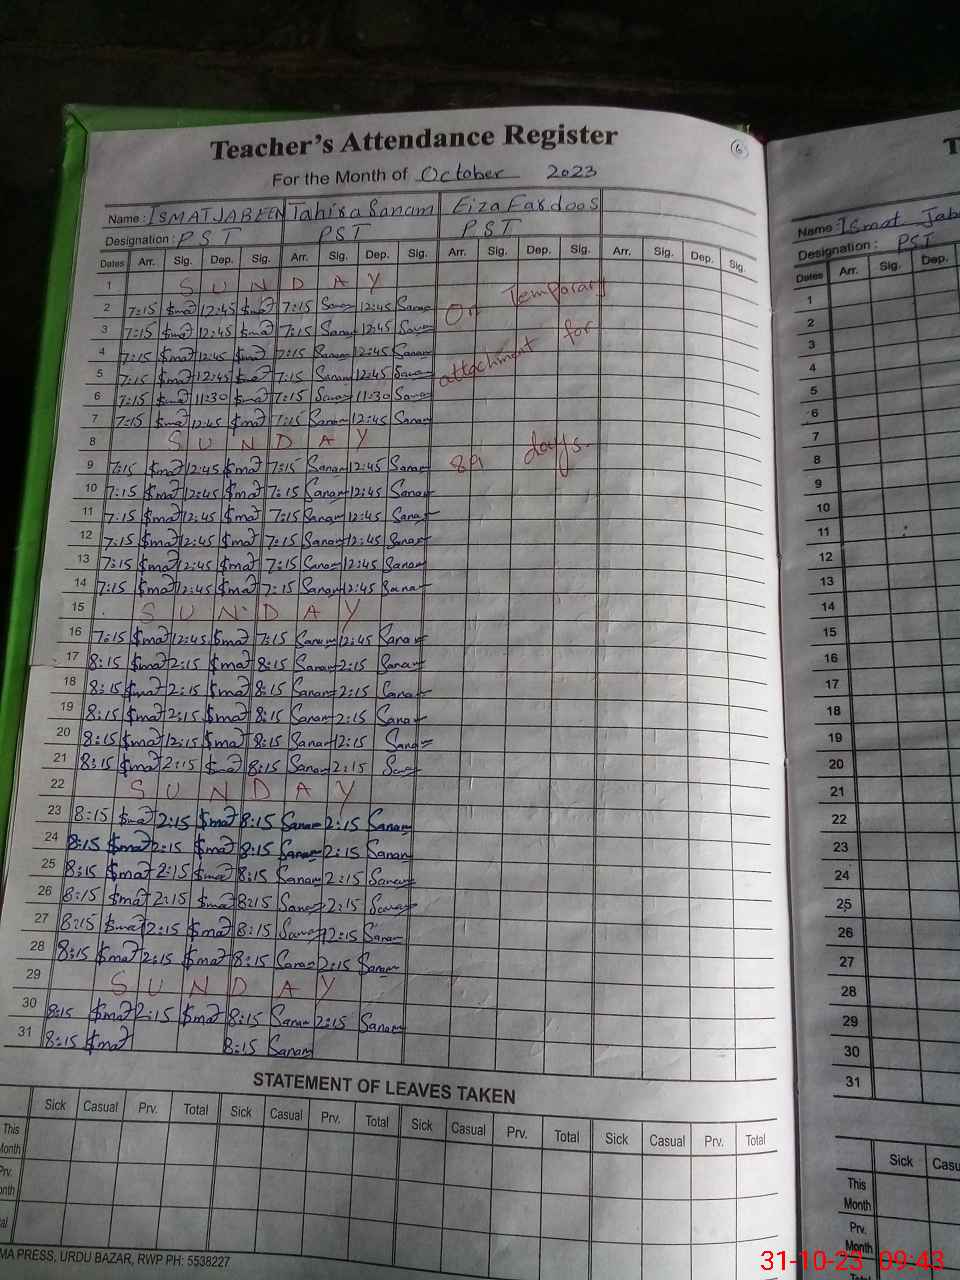 Teacher's Attendance Register
6
For the Month of October 2023
Name : ISMAT JABEEN Tahira Sanam Eiza Fardoos
Designation : PST PST PST
Dates Arr. Sig. Dep. Sig. Arr. Sig. Dep. Sig. Arr. Sig. Dep. Sig. Arr. Sig. Dep. Sig.
1 SUNDAY
2 7:15 $mat 12:45 $mat 7:15 Sanam 12:45 Sanam On Temporary
3 7:15 $mat 12:45 $mat 7:15 Sanam 12:45 Sanam
4 7:15 $mat 12:45 $mat 7:15 Sanam 12:45 Sanam attachment for
5 7:15 $mat 12:45 $mat 7:15 Sanam 12:45 Sanam
6 7:15 $mat 11:30 $mat 7:15 Sanam 11:30 Sanam
7 7:15 $mat 12:45 $mat 7:15 Sanam 12:45 Sanam
8 SUNDAY 89 days.
9 7:15 $mat 12:45 $mat 7:15 Sanam 12:45 Sanam
10 7:15 $mat 12:45 $mat 7:15 Sanam 12:45 Sanam
11 7:15 $mat 12:45 $mat 7:15 Sanam 12:45 Sanam
12 7:15 $mat 12:45 $mat 7:15 Sanam 12:45 Sanam
13 7:15 $mat 12:45 $mat 7:15 Sanam 12:45 Sanam
14 7:15 $mat 12:45 $mat 7:15 Sanam 12:45 Sanam
15 SUNDAY
16 7:15 $mat 12:45 $mat 7:15 Sanam 12:45 Sanam
17 8:15 $mat 2:15 $mat 8:15 Sanam 2:15 Sanam
18 8:15 $mat 2:15 $mat 8:15 Sanam 2:15 Sanam
19 8:15 $mat 2:15 $mat 8:15 Sanam 2:15 Sanam
20 8:15 $mat 12:15 $mat 8:15 Sanam 12:15 Sanam
21 8:15 $mat 2:15 $mat 8:15 Sanam 2:15 Sanam
22 SUNDAY
23 8:15 $mat 2:15 $mat 8:15 Sanam 2:15 Sanam
24 8:15 $mat 2:15 $mat 8:15 Sanam 2:15 Sanam
25 8:15 $mat 2:15 $mat 8:15 Sanam 2:15 Sanam
26 8:15 $mat 2:15 $mat 8:15 Sanam 2:15 Sanam
27 8:15 $mat 12:15 $mat 8:15 Sanam 12:15 Sanam
28 8:15 $mat 2:15 $mat 8:15 Sanam 2:15 Sanam
29 SUNDAY
30 8:15 $mat 2:15 $mat 8:15 Sanam 2:15 Sanam
31 8:15 $mat 8:15 Sanam
STATEMENT OF LEAVES TAKEN
Sick Casual Prv. Total Sick Casual Prv. Total Sick Casual Prv. Total Sick Casual Prv. Total
This
Month
Prv.
onth
al
MA PRESS, URDU BAZAR, RWP PH: 5538227
T
Name : Ismat Jab
Designation : PST
Dates Arr. Sig. Dep.
1
2
3
4
5
6
7
8
9
10
11
12
13
14
15
16
17
18
19
20
21
22
23
24
25
26
27
28
29
30
31
Sick Casu
This
Month
Prv.
Month
Total
31-10-23 09:43